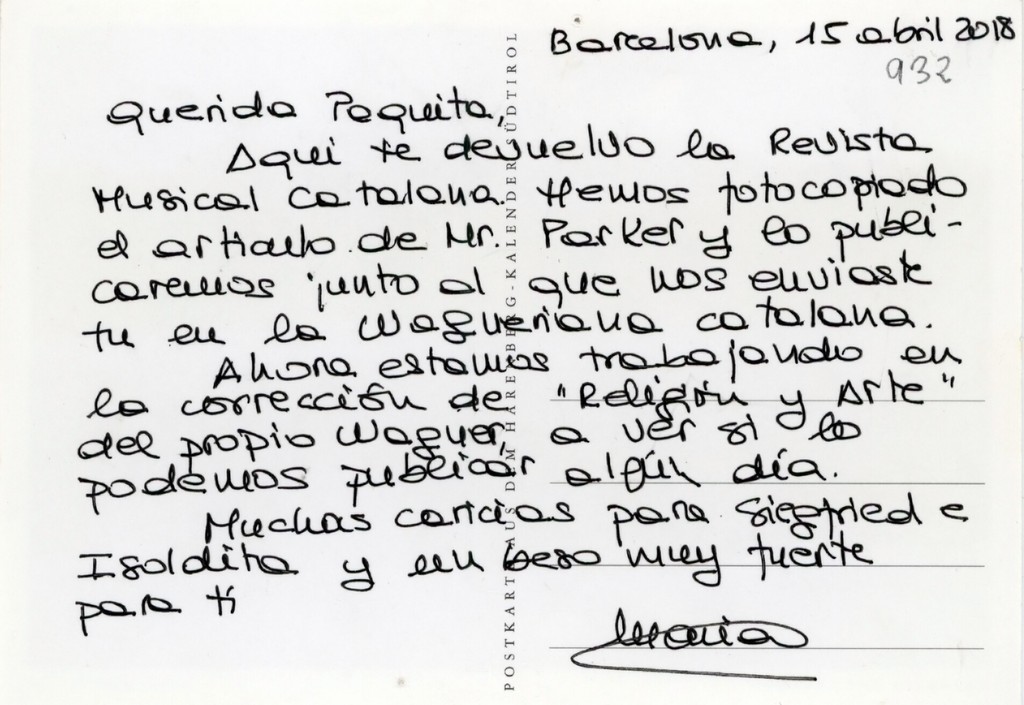 Barcelona, 15 abril 2018
932
Querida Paquita,
Aquí te devuelvo la Revista
Musical Catalana. Hemos fotocopiado
el artículo de Mr. Parker y lo publi-
caremos junto al que nos enviaste
tu en la Wagneriana catalana.
Ahora estamos trabajando en
la corrección de "Religión y Arte"
del propio Wagner, a ver si lo
podemos publicar algún día.
Muchas caricias para Siegfried e
Isoldita y un beso muy fuerte
para ti
Maria
POSTKARTE AUS DEM HARENBERG-KALENDER SÜDTIROL